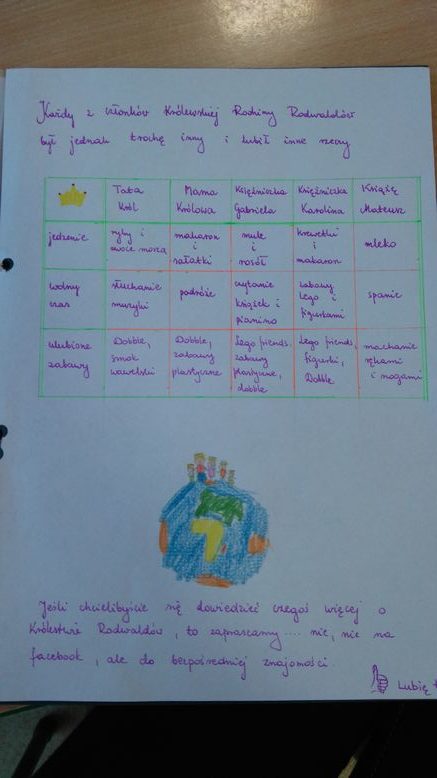 Każdy z członków Królewskiej Rodziny Radwałdów
był jednak trochę inny i lubił inne rzeczy
Tata Król
Mama Królowa
Księżniczka Gabriela
Księżniczka Karolina
Książę Mateusz
jedzenie
ryby i owoce morza
makaron i sałatki
mule i rosół
krewetki i makaron
mleko
wolny czas
słuchanie muzyki
podróże
czytanie książek i pianino
zabawy Lego i figurkami
spanie
ulubione zabawy
Dobble, smok wawelski
Dobble, zabawy plastyczne
Lego friends, zabawy plastyczne, dobble
Lego friends, figurki, Dobble
machanie rękami i nogami
Jeśli chcielibyście się dowiedzieć czegoś więcej o
Królestwie Radwałdów, to zapraszamy .... nie, nie na
facebook, ale do bezpośredniej znajomości.
Lubię